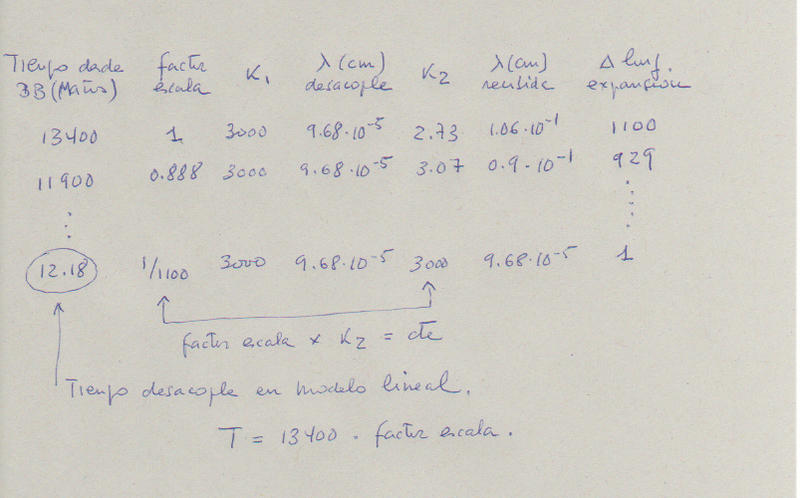 Tiempo desde factor K₁ λ(cm) K₂ λ(cm) Δ long.
BB (Maños) escala desacople recibida expansión
13400 1 3000 9.68·10⁻⁵ 2.73 1.06·10⁻¹ 1100
11900 0.888 3000 9.68·10⁻⁵ 3.07 0.9·10⁻¹ 929
12.18 1/1100 3000 9.68·10⁻⁵ 3000 9.68·10⁻⁵ 1
factor escala × K₂ = cte
Tiempo desacople en modelo lineal.
T = 13400 · factor escala.